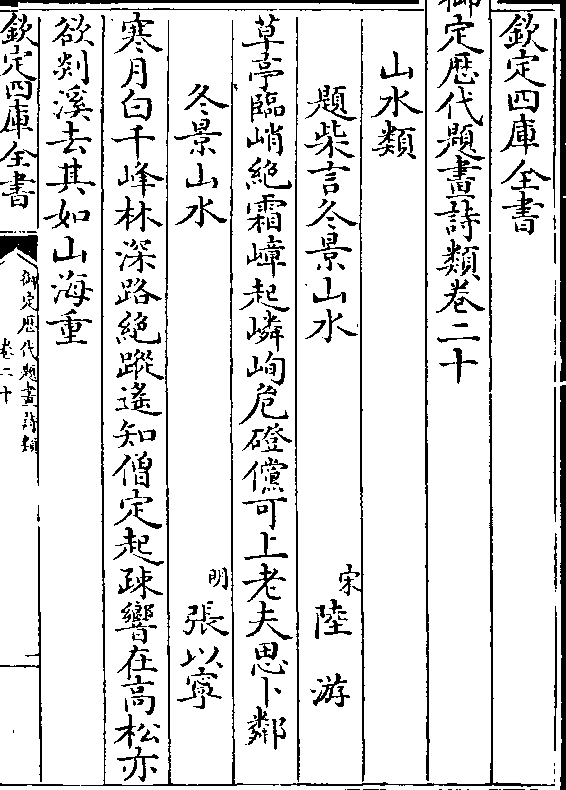 欽定四庫全書
御定歴代題畫詩類卷二十
山水類
題柴言冬景山水
宋陸游
草亭臨峭絶霜嶂起嶙峋危磴儻可上老夫思卜鄰
冬景山水
明張以寧
寒月白千峰林深路絶蹤遙知僧定起疎響在高松亦
欲剡溪去其如山海重
欽定四庫全書
御定歴代題畫詩類
卷二十
一